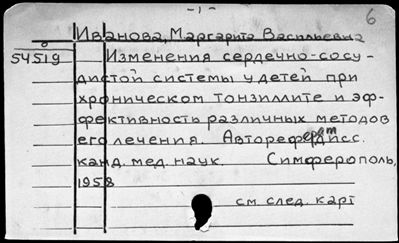 - 1 -
6
Иванова, Маргарита Васильевна
54519
Изменения сердечно-сосу-
дистой системы у детей при
хроническом тонзиллите и эф-
фективность различных методов
его лечения. Автореферат дисс.
канд. мед. наук. Симферополь,
1958
см. след. карт